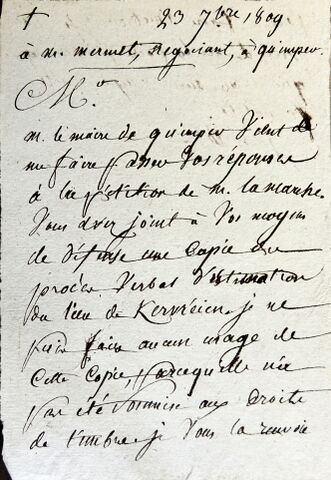 † 23 7bre 1809
à m. mermet, Negociant, à quimper
Mr.
m. le maire de quimper vient de
me faire passer vos réponses
à la pétition de m. lamarche.
Vous avez joint à vos moyens
de défense une Copie du
procès verbal d'estimation
du lieu de Kervreien. je ne
puis faire aucun usage de
Cette Copie, parcequelle n'a
pas été soumise aux droits
de timbre. je vous la renvoie